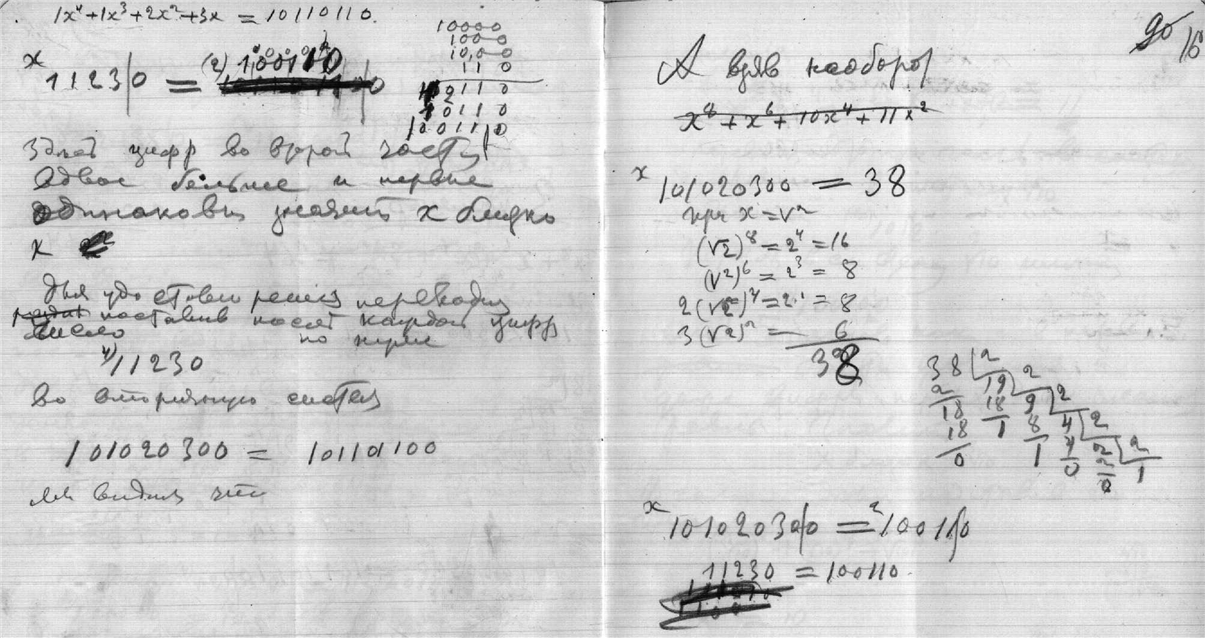 1x⁴+1x³+2x²+3x = 10110110.
x 11230 = (2) 100110
10000
1000
1000
110
2110
10110
100110
цифр во второй части
вдвое больше и первые
одинаковы значит x близко
к
Для удобства переводим
поставив после каждой цифр
число по нулю
11230
во вторичную систему
101020300 = 10110100
мы видим что
90
16
А взяв наоборот
x⁸ + x⁶ + 10x⁴ + 11x²
x 101020300 = 38
при x = √2
(√2)⁸ = 2⁴ = 16
(√2)⁶ = 2³ = 8
2(√2)⁴ = 2· = 8
3(√2)² = 6
38
38 2
2 19 2
18 18 9 2
18 1 8 4 2
0 1 4 2 2
0 2 1
0
x 101020300 = 2 100110
11230 = 100110.